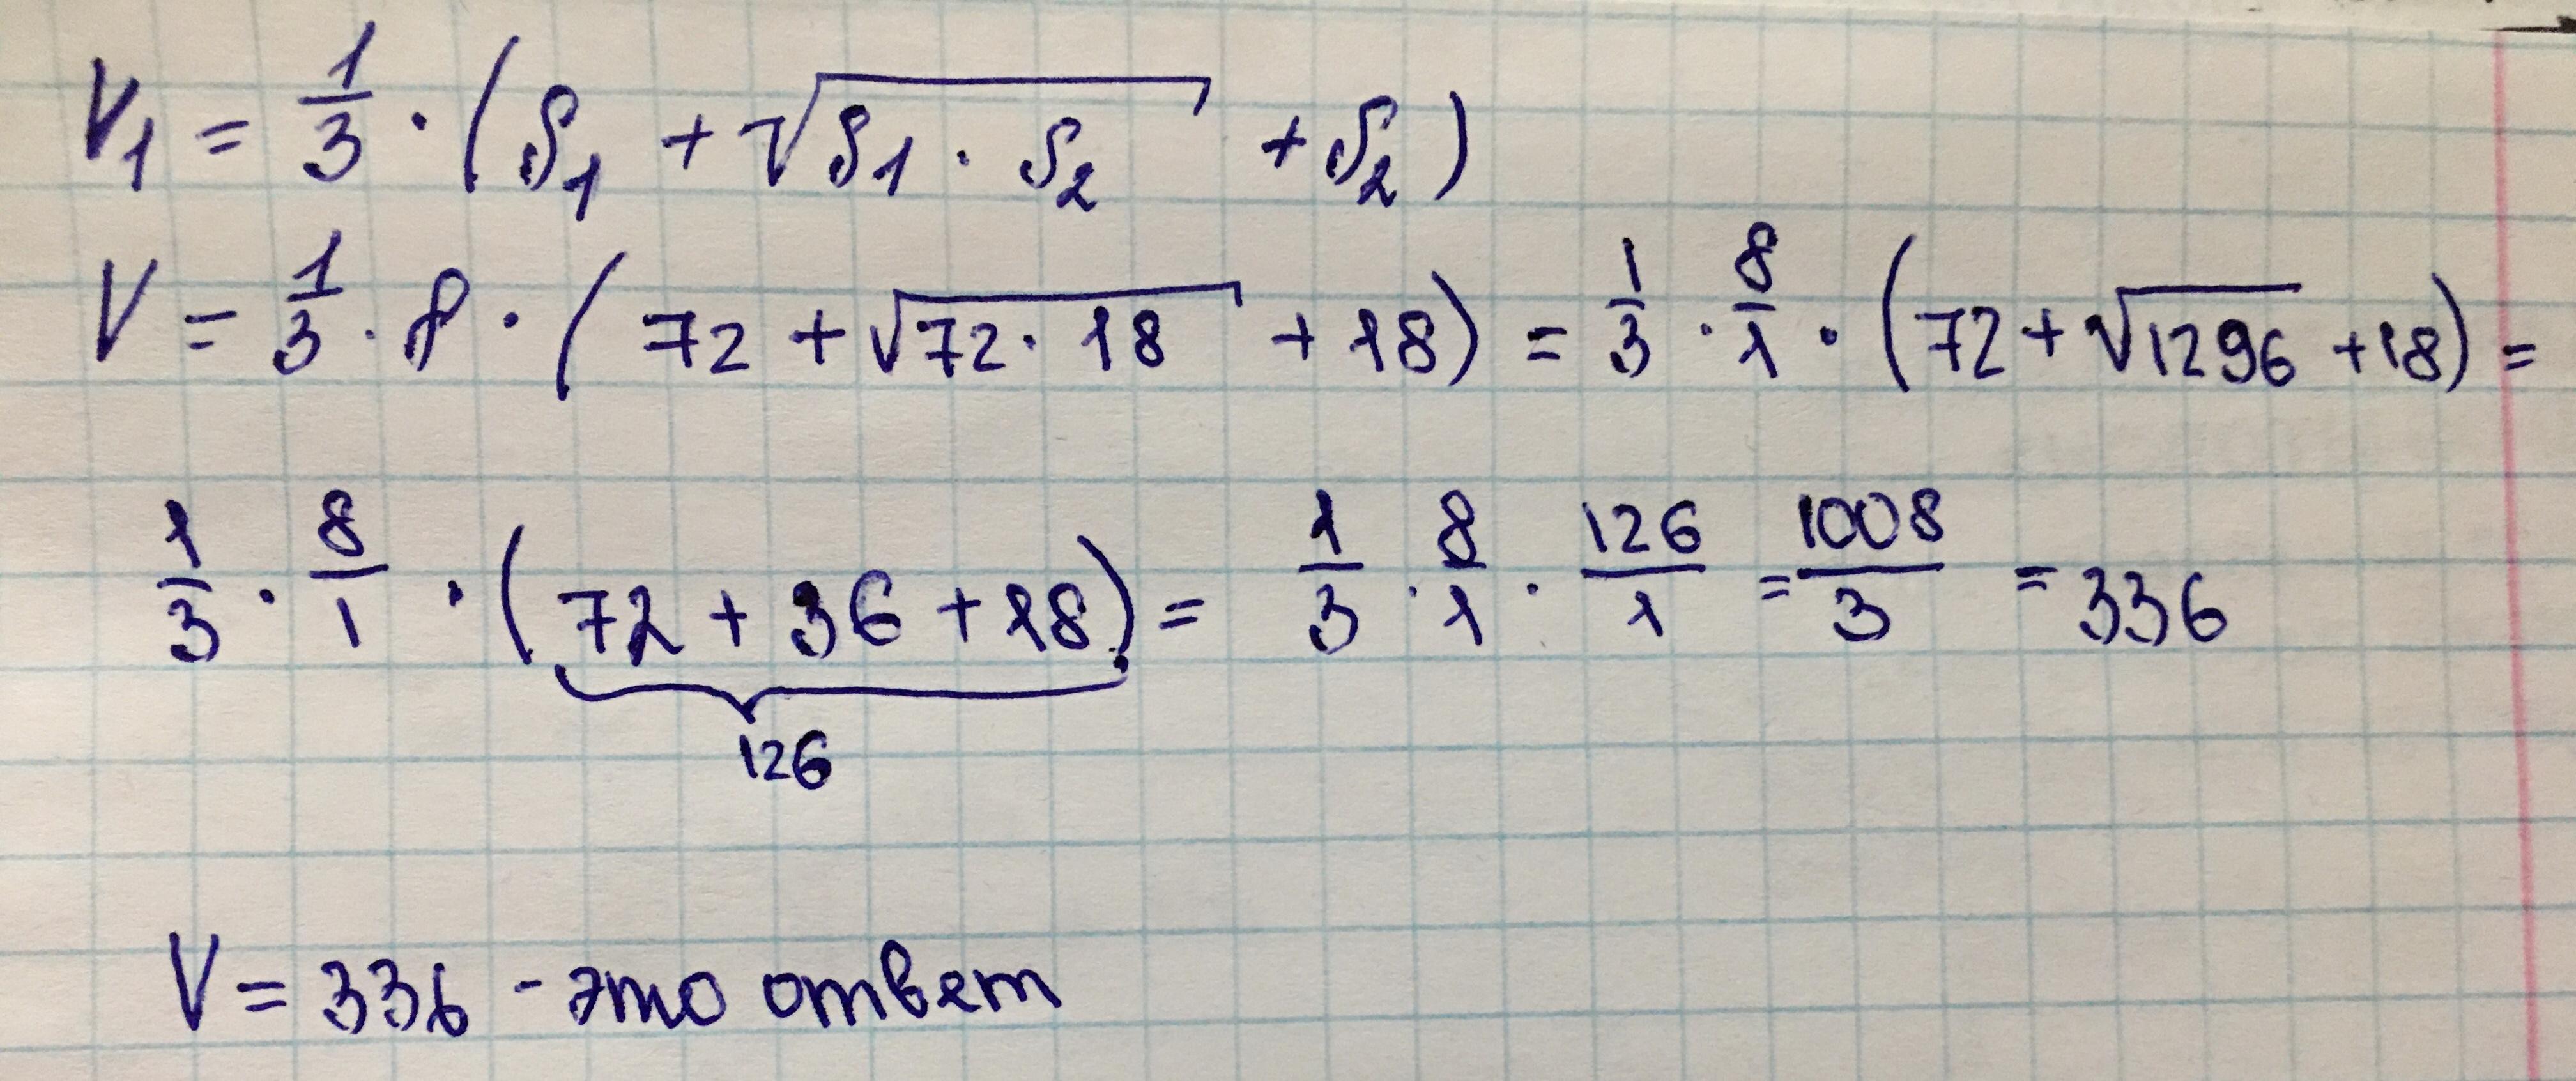 V₁ = 1/3 · (S₁ + √(S₁ · S₂) + S₂)
V = 1/3 · 8 · (72 + √(72 · 18) + 18) = 1/3 · 8/1 · (72 + √1296 + 18) =
1/3 · 8/1 · (72 + 36 + 18) = 1/3 · 8/1 · 126/1 = 1008/3 = 336
126
V = 336 - это ответ